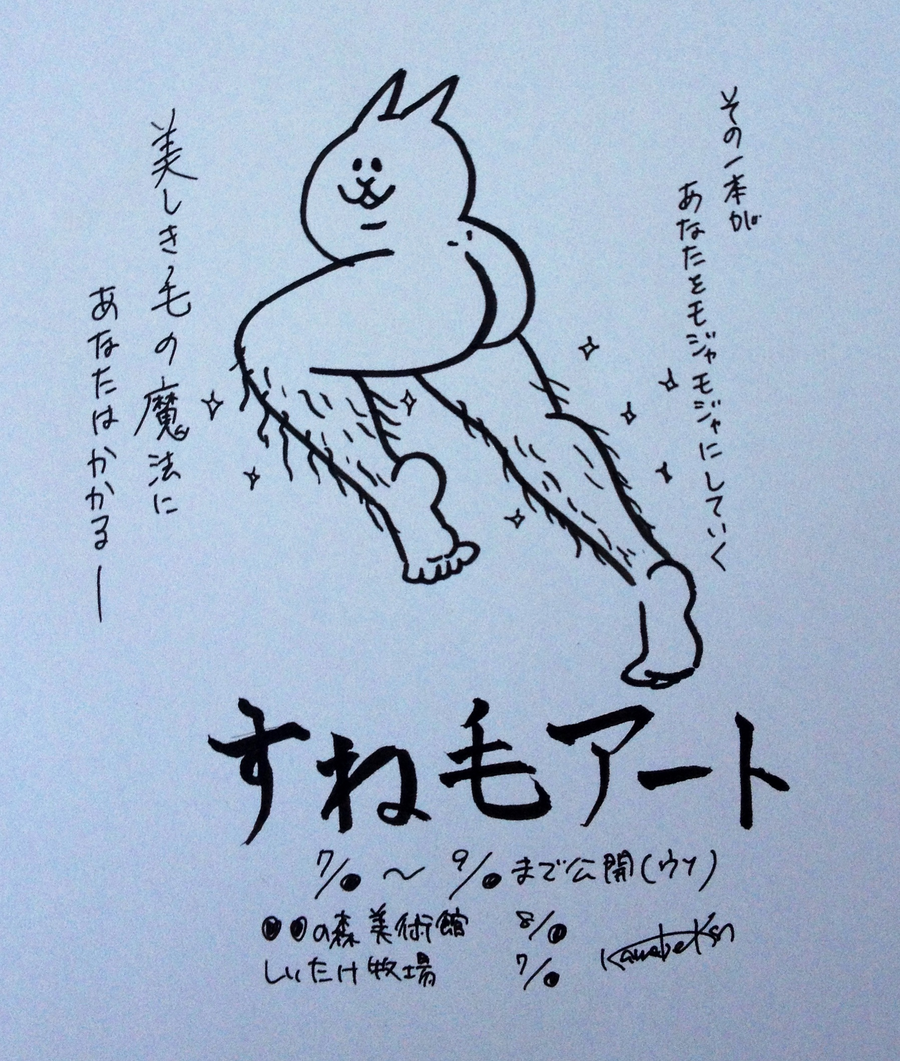 その一本が
あなたをモジャモジャにしていく
美しき毛の魔法に
あなたはかかるー
すね毛アート
7/● ～ 9/● まで公開(ウソ)
●●の森美術館 8/●
しいたけ牧場 7/●